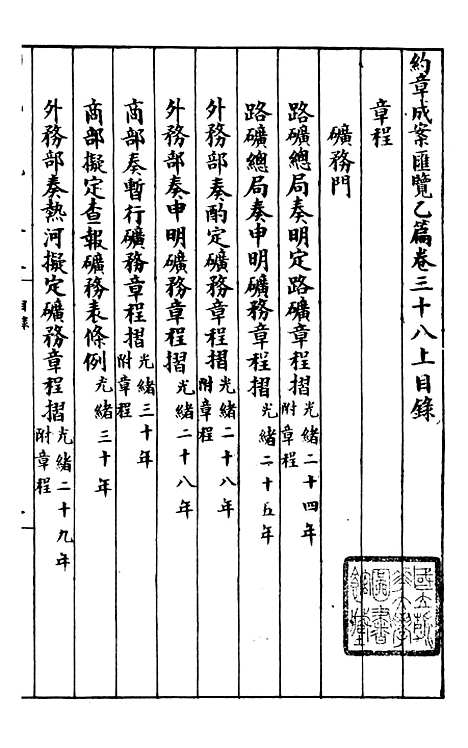 約章成案匯覽乙篇卷三十八上目錄
章程
礦務門
路礦總局奏明定路礦章程摺 光緒二十四年 附章程
路礦總局奏申明礦務章程摺 光緒二十五年
外務部奏酌定礦務章程摺 光緒二十八年 附章程
外務部奏申明礦務章程摺 光緒二十八年
商部奏暫行礦務章程摺 光緒三十年 附章程
商部擬定查報礦務表條例 光緒三十年
外務部奏熱河擬定礦務章程摺 光緒二十九年 附章程
目錄